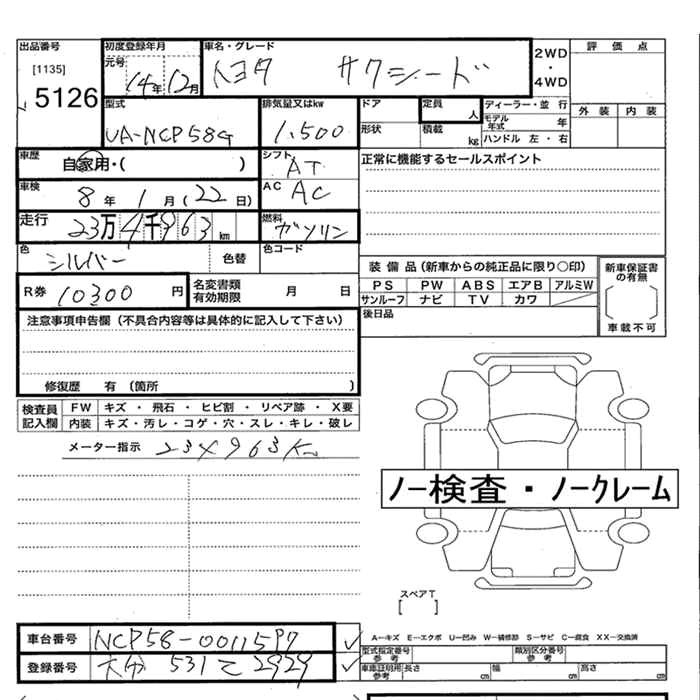 出品番号 初度登録年月 車名・グレード 2WD・4WD 評価点
[1135] 元号 14年12月 トヨタ サクシード
5126
型式 排気量又はkw ドア 定員 人 ディーラー・並 行 外装 内装
UA-NCP58G 1,500 形状 積載 kg モデル年式 年
ハンドル 左・右
車歴 自家用・( ) シフト AT 正常に機能するセールスポイント
車検 8年 1月 (22日) AC AC
走行 23万4千963km 燃料 ガソリン
色 シルバー 色替 色コード
装備品(新車からの純正品に限り○印) 新車保証書の有無
R券 10300円 名変書類有効期限 月 日 PS PW ABS エアB アルミW
サンルーフ ナビ TV カワ
車載不可
注意事項申告欄(不具合内容等は具体的に記入して下さい) 後日品
修復歴 有 (箇所 )
検査員記入欄 FW キズ・飛石・ヒビ割・リペア跡・X要
内装 キズ・汚レ・コゲ・穴・スレ・キレ・破レ
メーター指示
ノー検査・ノークレーム
スペアT
[ ]
車台番号 NCP58-0011597 A-キズ E-エクボ U-凹み W-補修跡 S-サビ C-腐食 XX-交換済
型式指定番号 参考 類別区分番号 参考
登録番号 大分 531 て 2929 車庫証明所 参考 長さ cm 幅 cm 高さ cm